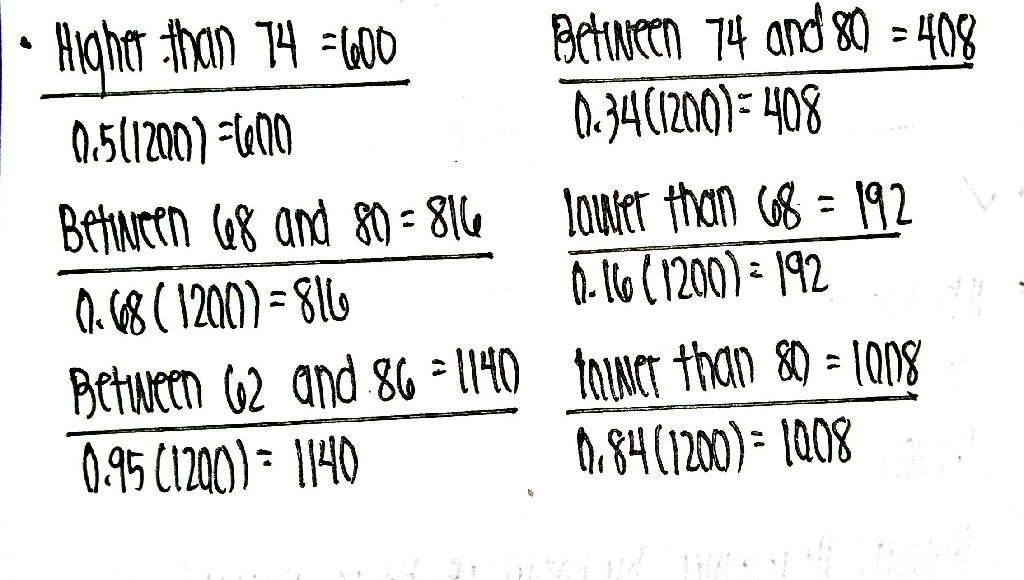 • Higher than 74 = 600
0.5(1200) = 600
Between 68 and 80 = 816
0.68(1200) = 816
Between 62 and 86 = 1140
0.95(1200) = 1140
Between 74 and 80 = 408
0.34(1200) = 408
lower than 68 = 192
0.16(1200) = 192
lower than 80 = 1008
0.84(1200) = 1008